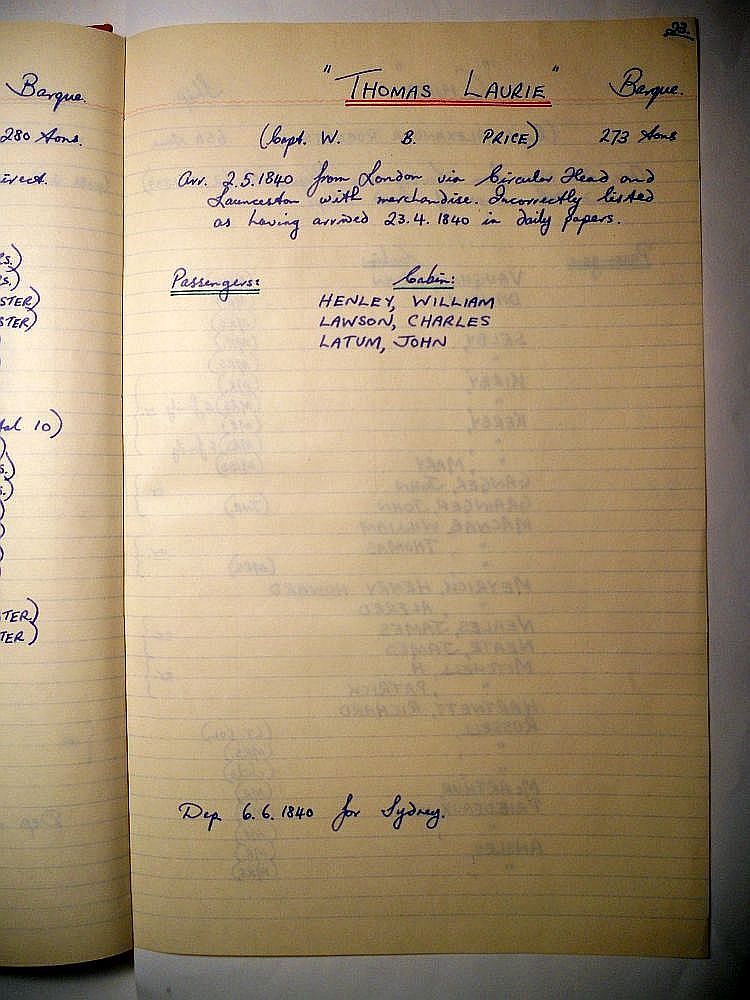 Barque.
280 Tons.
irect.
STER)
STER)
tal 10)
TER)
TER)
23.
"THOMAS LAURIE" Barque.
(Capt. W. B. PRICE) 273 Tons
Arr. 2.5.1840 from London via Circular Head and
Launceston with merchandise. Incorrectly listed
as having arrived 23.4.1840 in daily papers.
Passengers: Cabin:
HENLEY, WILLIAM
LAWSON, CHARLES
LATUM, JOHN
Dep. 6.6.1840 for Sydney.